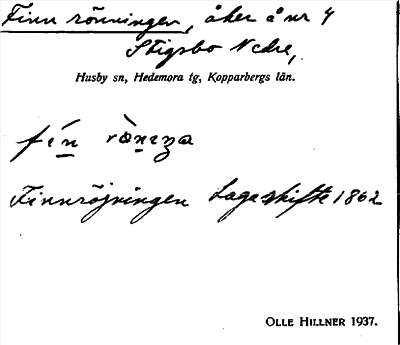 Finn rönningen, åker å nr 4
Stigsbo Nedre,
Husby sn, Hedemora tg, Kopparbergs län.
Finnröjningen Laga skifte 1862
OLLE HILLNER 1937.